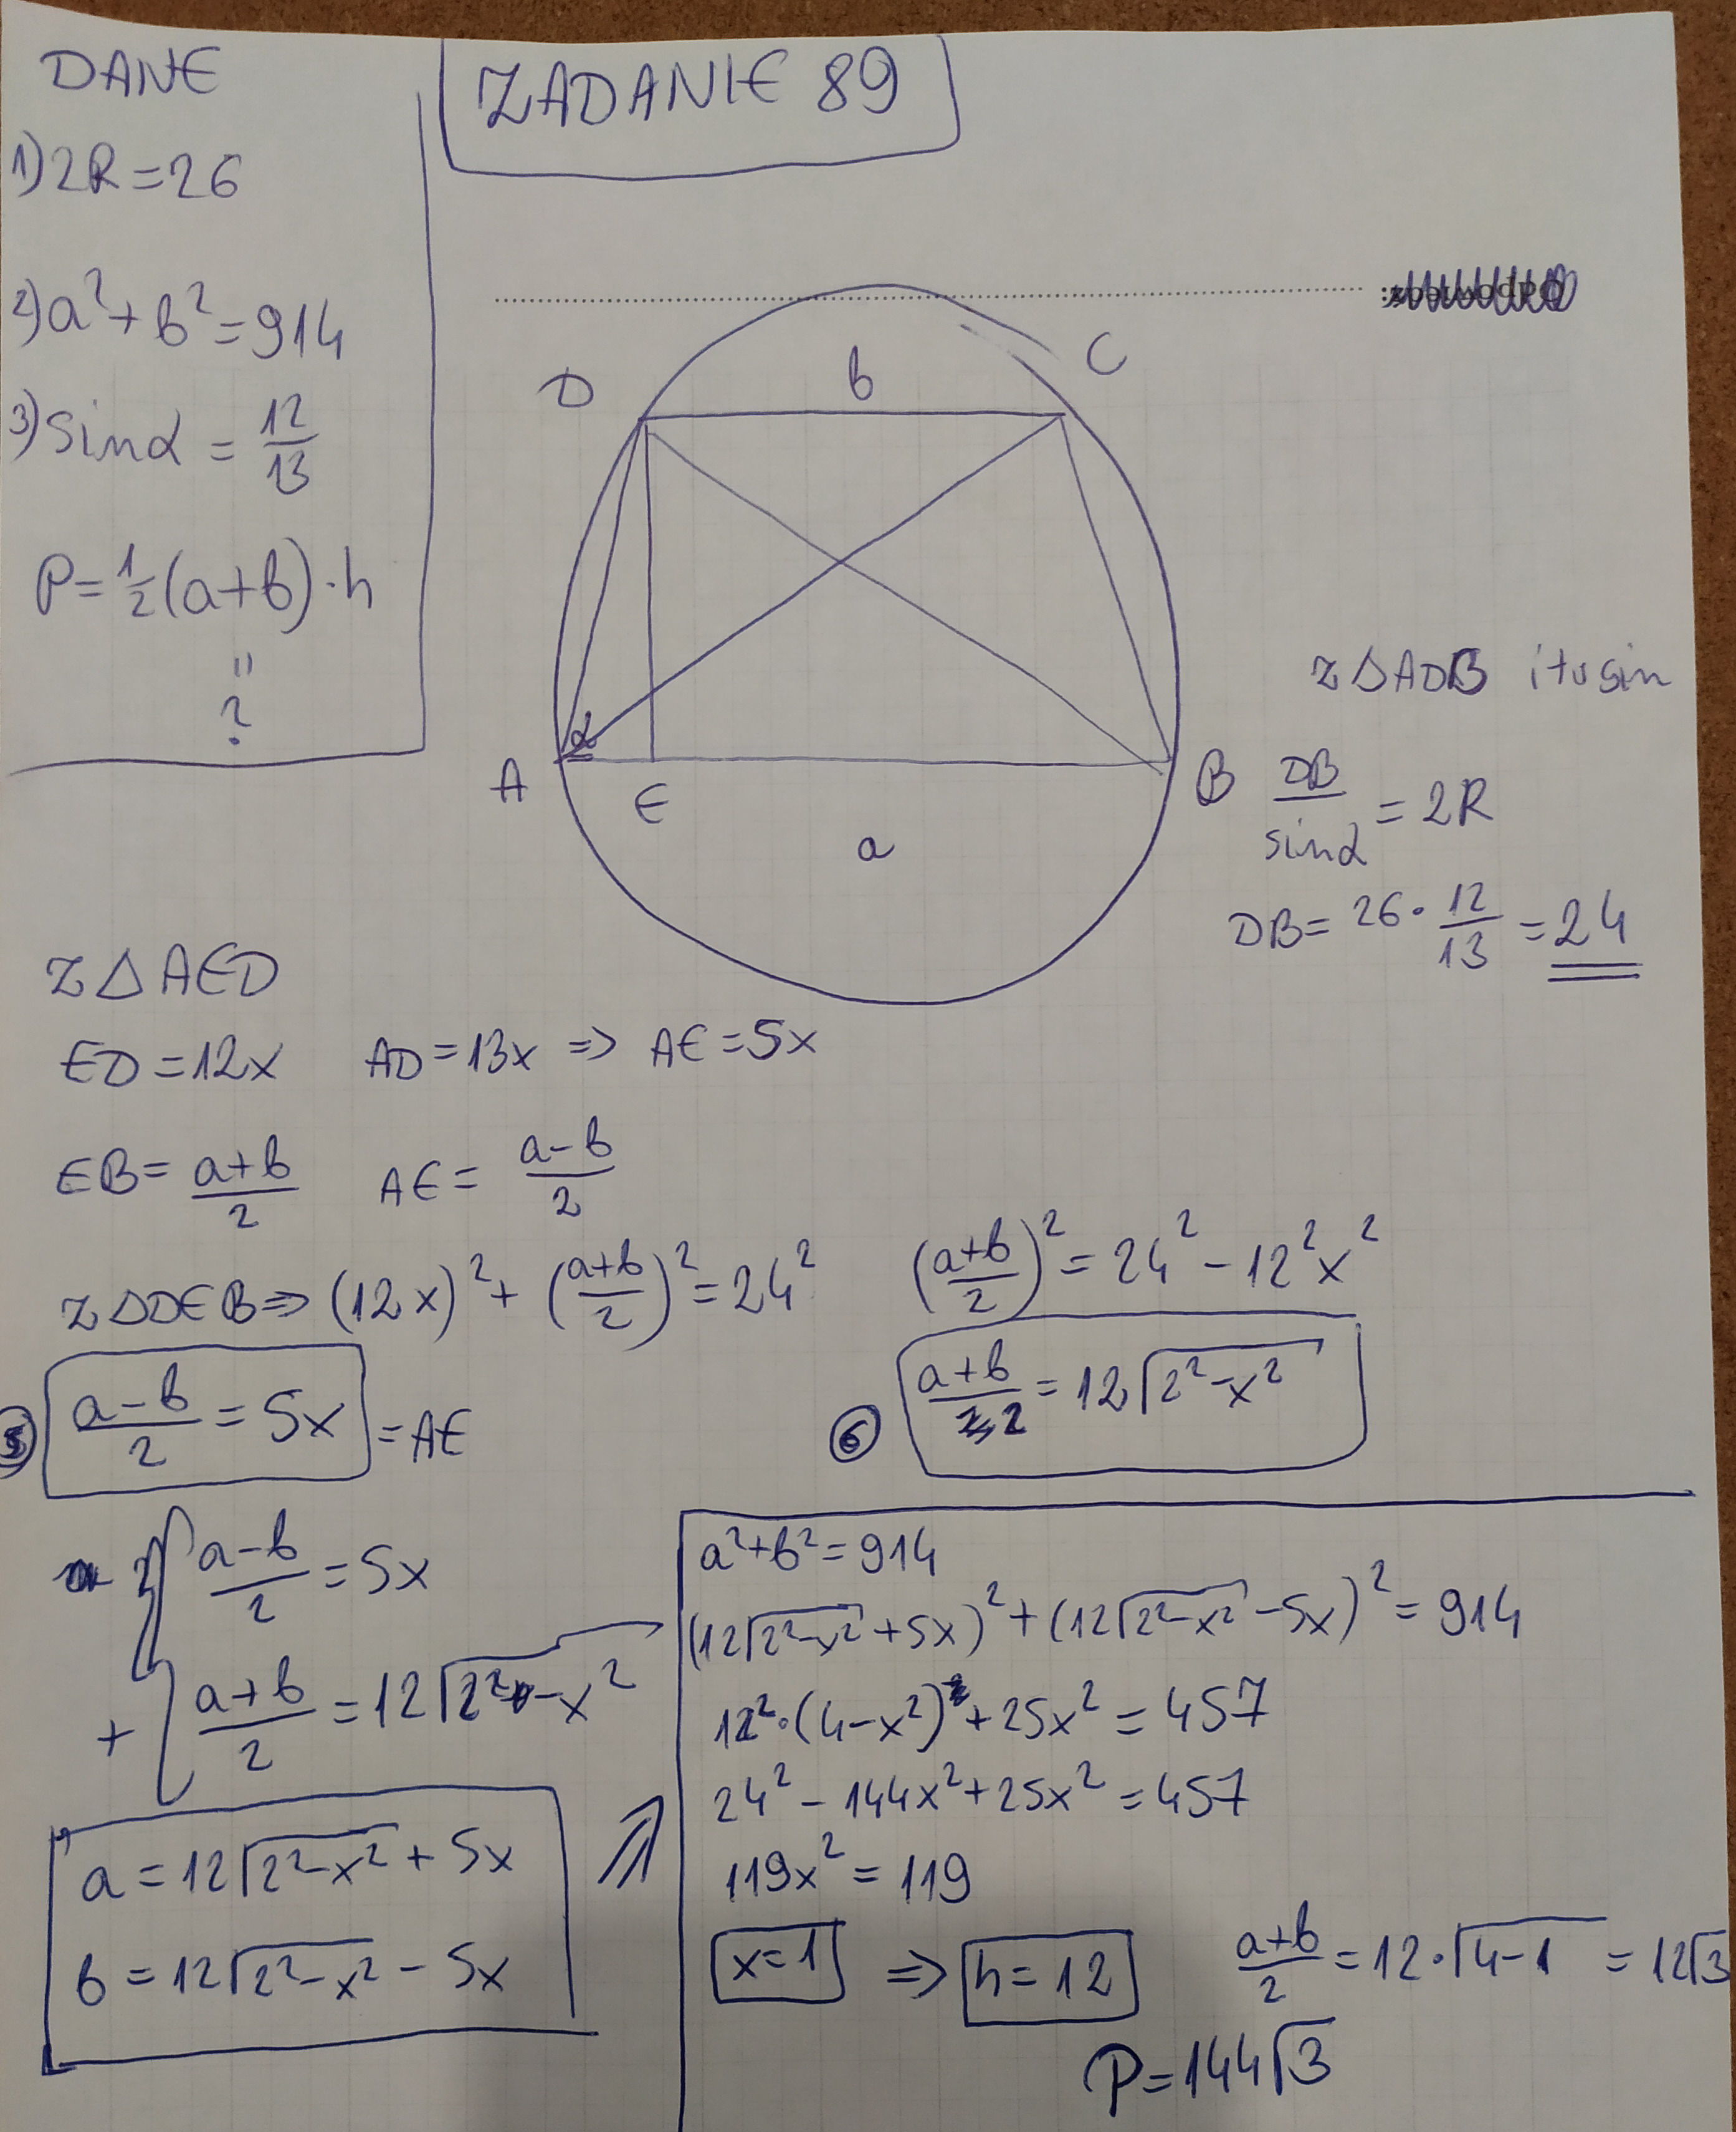 DANE
ZADANIE 89
1) 2R = 26
2) a² + b² = 914
3) sinα = 12/13
P = 1/2 (a+b)·h
"
?
D
b
C
α
A
E
B
a
Z △ADB i tw sin
DB/sinα = 2R
DB = 26 · 12/13 = 24
Z △ AED
ED = 12x AD = 13x => AE = 5x
EB = (a+b)/2 AE = (a-b)/2
Z △DEB => (12x)² + ((a+b)/2)² = 24² ((a+b)/2)² = 24² - 12²x²
5 (a-b)/2 = 5x = AE
6 (a+b)/2 = 12√(2²-x²)
(a-b)/2 = 5x
+ (a+b)/2 = 12√(2²-x²)
a = 12√(2²-x²) + 5x
b = 12√(2²-x²) - 5x
a² + b² = 914
(12√(2²-x²) + 5x)² + (12√(2²-x²) - 5x)² = 914
12²·(4-x²) + 25x² = 457
24² - 144x² + 25x² = 457
119x² = 119
x = 1 => h = 12 (a+b)/2 = 12·√(4-1) = 12√3
P = 144√3